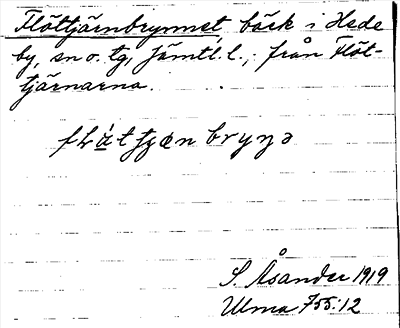 Flöttjärnbrynnet bäck i Hede
by, sn o. tg, Jämtl. l.; från Flöt-
tjärnarna.
S. Åsander 1919
Ulma 755:12